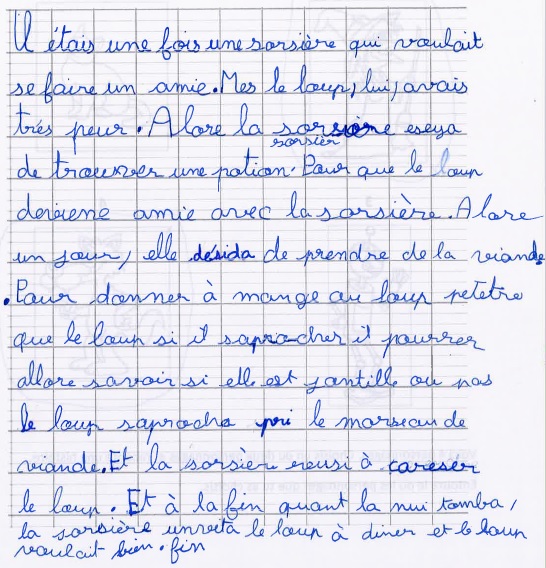 Il étais une fois une sorsière qui voulait
se faire un amie. Mes le loup, lui, avais
très peur. Alore la sorsière eseya
sorsier
de trouver une potion. Pour que le loup
deviene amie avec la sorsière. Alore
un jour, elle désida de prendre de la viande
. Pour donner à mange au loup petetre
que le loup si il saprocher il pourrer
allore savoir si elle est jantille ou pas
le loup saprocha pri le morseau de
viande. Et la sorsière reusi à careser
le loup. Et à la fin quant la nui tomba,
la sorsière unvita le loup à diner et le loup
voulait bien. fin